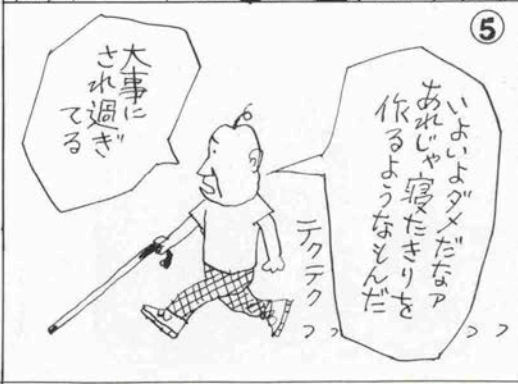 ⑤
いよいよダメだなァ
あれじゃ寝たきりを
作るようなもんだ
大事に
され過ぎ
てる
テクテク
っっ
っっ